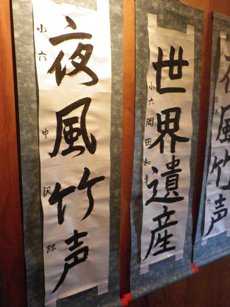 夜風竹声
小六
世界遺産
小六 岡田和
風竹声